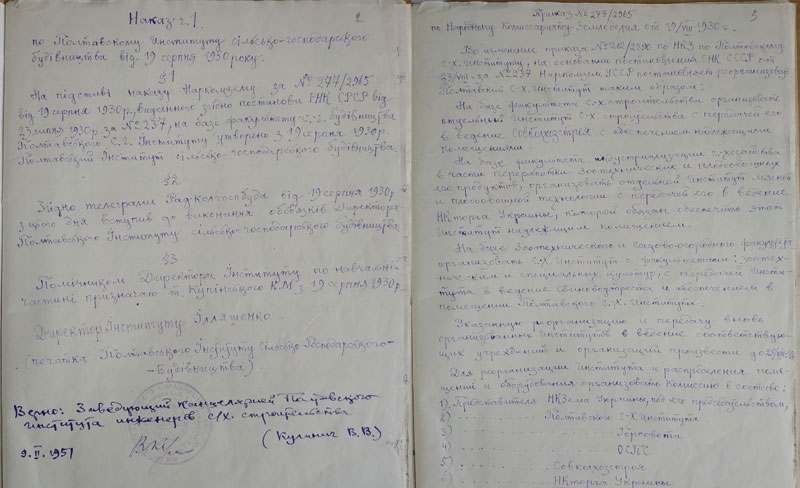 Наказ ч. 1
по Полтавському Інституту сільсько-господарского
будівництва від 19 серпня 1930 року.
§1
На підставі наказу Наркомзему за № 277/2965
від 19 серпня 1930 р., виданного згідно постанови РНК СРСР від
23 липня 1930 р. за № 237, на базе факультету с.г. будівництва
Полтавського С.Г. Інституту утворено з 19 серпня 1930 р.
Полтавский Інститут сільсько-господарского будівництва.
§2
Згідно телеграми Радколгоспбуда від 19 серпня 1930 р.
з цього дня вступив до виконання обовязків Директора
Полтавського Інституту сільсько-господарского будівництва
§3
Помічником Директора Інституту по навчальній
частині призначаю т. Купінського К.М. з 19 серпня 1930 р.
Директор Інституту Ілляшенко.
(печатка Полтавського Інституту Сільсько Господарского
Будівництва)
Верно: Заведующий канцелярией Полтавского
института инженеров с/х. строительства
(Кулинич В.В.)
9.II.1951
2
Приказ № 277/2965
5
по Народному Комиссариату Земледелия от 19/VIII 1930 г.
Во изменение приказа по НКЗ по Полтавскому
с.х. институту, на основании постановления СНК СССР от
23/VII за № 237 Наркомзем УССР постановляет реорганизовать
Полтавский С-Х. Институт таким образом:
На базе факультета с-х. строительства организовать
отдельный институт с-х строительства с передачей его
в ведение Совхозстроя с обеспечением надлежащим
помещением.
На базе факультета индустриализации сельхозства
в части переработки зоотехнических и плодоовощных
продуктов, организовать отдельный институт
и плодоовощной технологии с передачей его в ведение
НКторга Украины, который обязан обеспечить этот
институт надлежащим помещением.
На базе зоотехнического и факультета
организовать С.Х. Институт с факультетами: зоотех-
ническим и специальных культур, с передачей Инсти-
тута в ведение Свиноводтреста и обеспечением в
помещении Полтавского С.Х. Института.
Указанную реорганизацию и передачу вновь
организованных институтов в ведение соответствую-
щих учреждений и организаций произвести до
Для реорганизации института и распределения поме-
щений и оборудования организовать Комиссию в составе:
1) Представителя НКЗема Украины, под его председательством,
2) Полтавского С-Х института
3) Горсовета
4) ОСПС
5) Совхозстроя
НКторга Украины